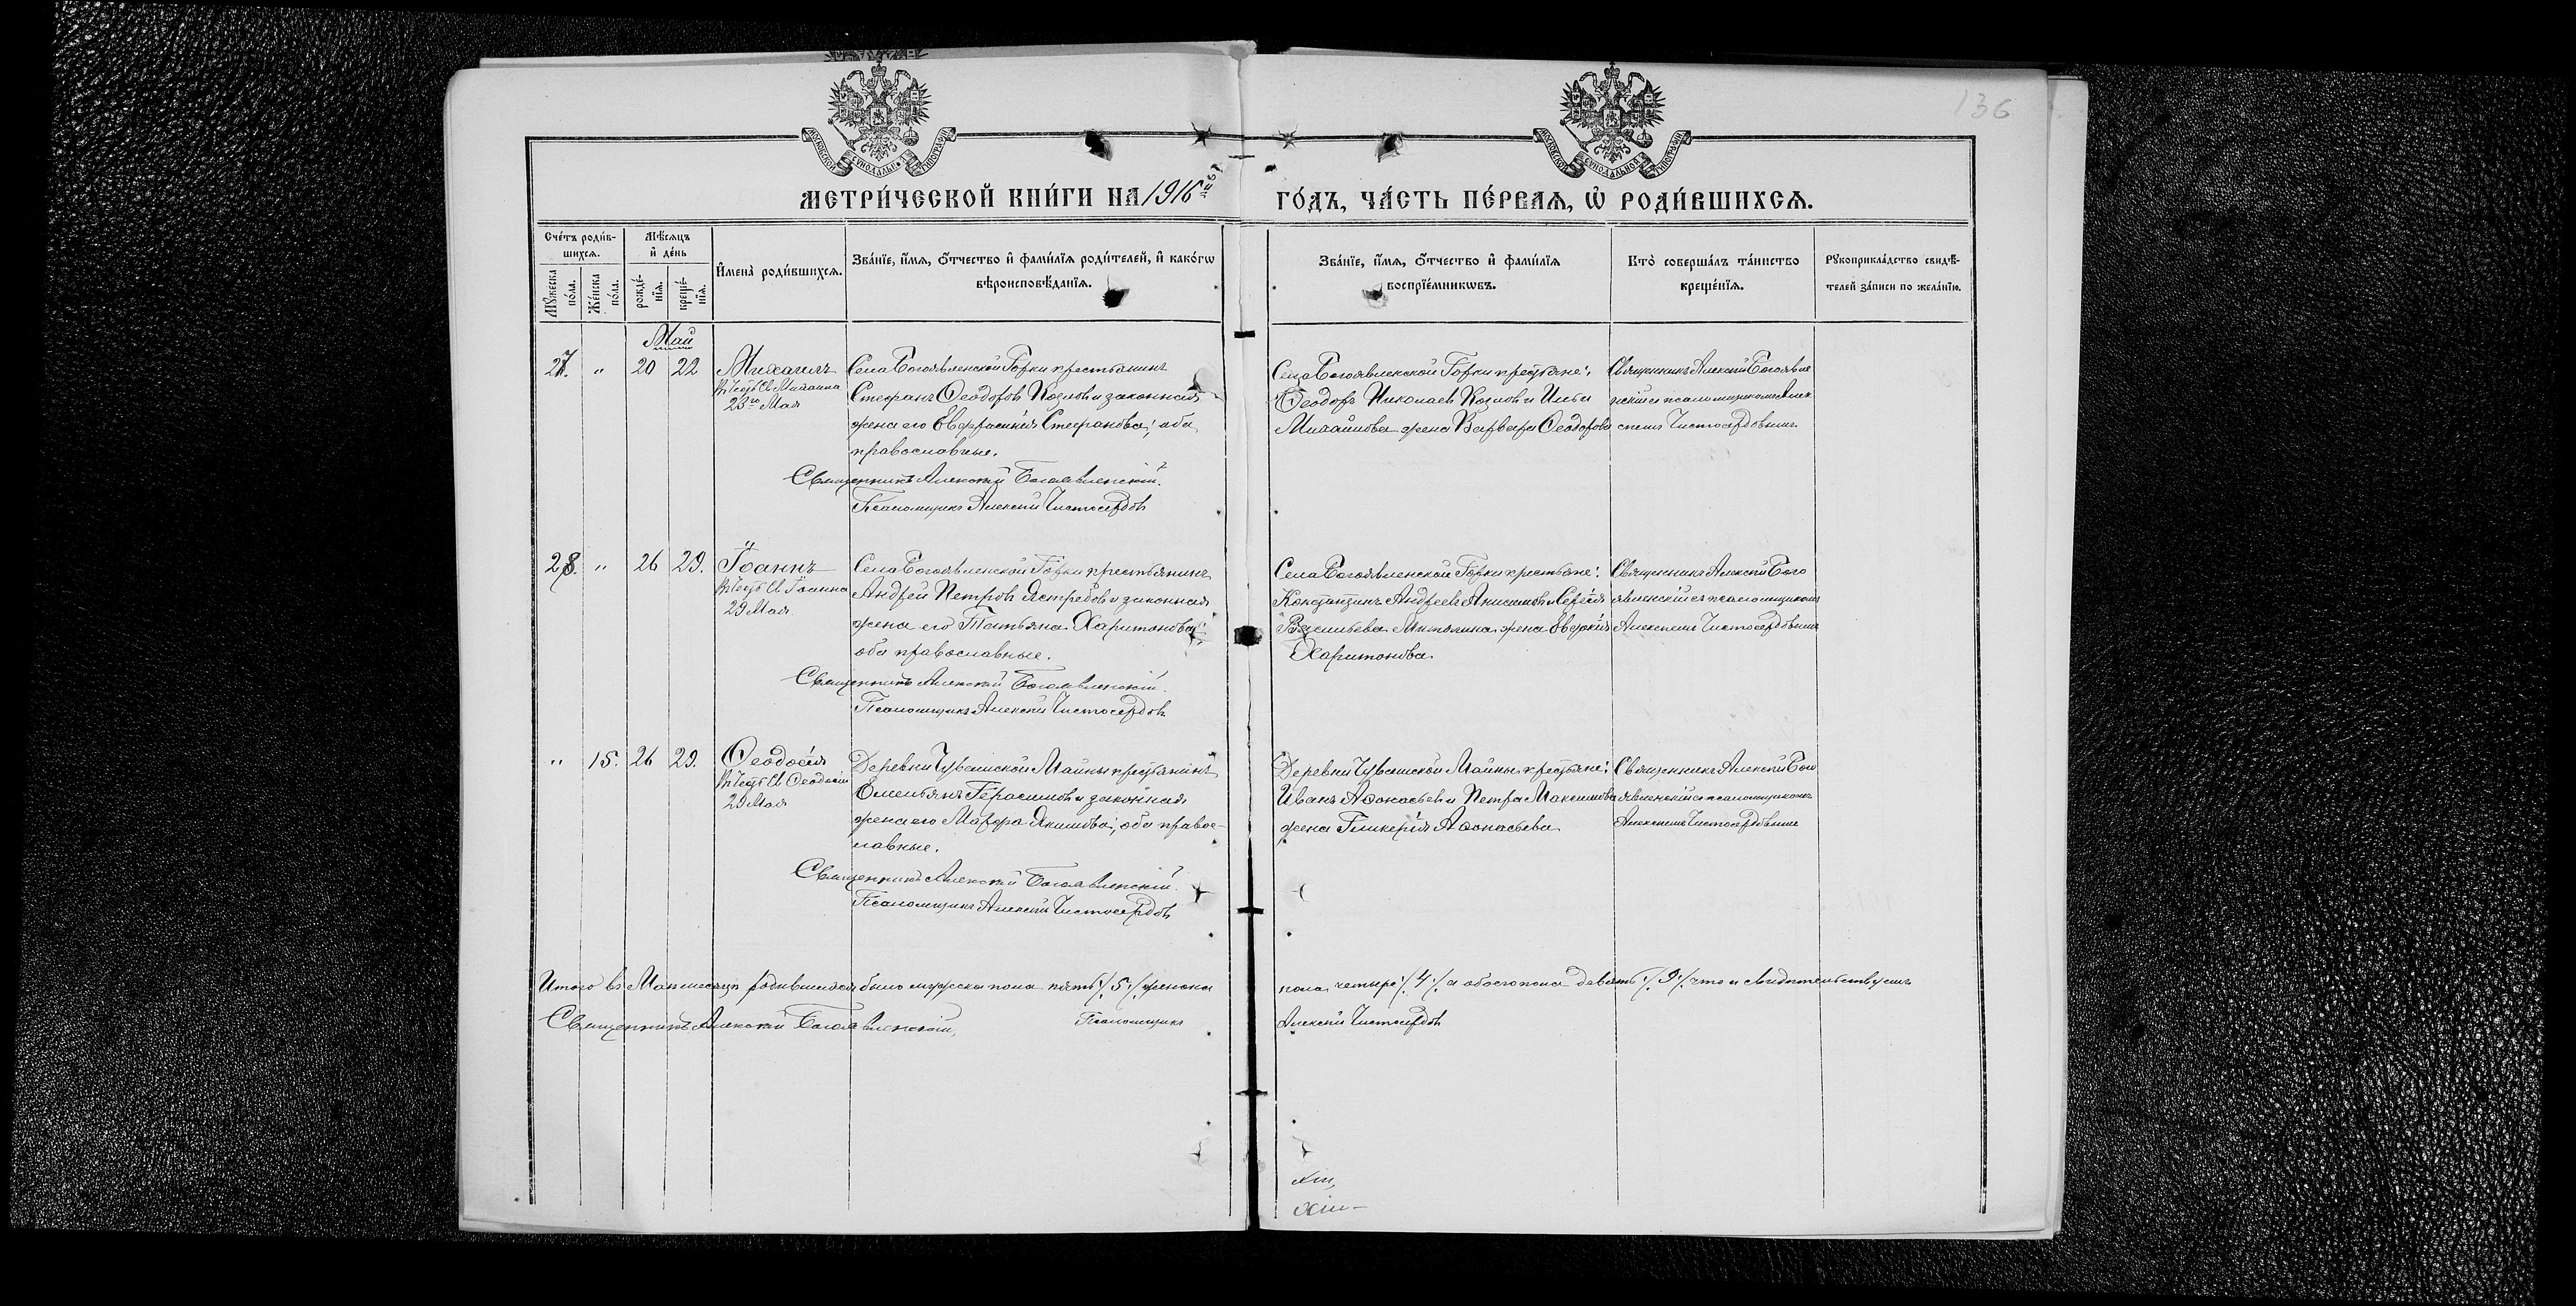 136
МОСКОВСКОЙ СѴНОДАЛЬНОЙ ТИПОГРАФІИ
МОСКОВСКОЙ СѴНОДАЛЬНОЙ ТИПОГРАФІИ
МЕТРИ́ЧЕСКОЙ КНИ́ГИ НА 1916-ый ГО́ДЪ, ЧА́СТЬ ПЕ́РВАѦ, Ѡ҆ РОДИ́ВШИХСѦ.
Сче́тъ роди́в-
шихсѧ.
Мꙋ́жеска по́ла.
Же́нска по́ла.
Мѣ́сѧцъ
и҆ де́нь
рожде́-
нїѧ.
креще́-
нїѧ.
И҆мена̀ роди́вшихсѧ.
Зва́нїе, и҆́мѧ, ѻ҆́тчество и҆ фами́лїѧ роди́телей, и҆ како́гѡ
вѣроисповѣ́данїѧ.
Зва́нїе, и҆́мѧ, ѻ҆́тчество и҆ фами́лїѧ
воспрїе́мникѡвъ.
Кто̀ соверша́лъ та́инство
креще́нїѧ.
Рꙋкоприкла́дство свидѣ́-
телей за́писи по жела́нїю.
Май
27. " 20 22 Михаилъ
Въ честь Св Михаила
23го Мая
Села Богоявленской Горки крестьянинъ
Стефанъ Ѳеодоровъ Козловъ и законная
жена его Евфросинія Стефанова; оба
православные.
Священникъ Алексѣй Богоявленскій.
Псаломщикъ Алексѣй Чистосердовъ
Села Богоявленской Горки крестьяне:
Ѳеодоръ Николаевъ Козловъ и Ильи
Михайлова жена Варвара Ѳеодорова
Священникъ Алексѣй Богоявле
нскій съ псаломщикомъ Алек
сѣемъ Чистосердовымъ
28. " 26 29. Іоаннъ
Въ честь Св Іоанна
29 Мая
Села Богоявленской Горки крестьянинъ
Андрей Петровъ Ястребовъ и законная
жена его Татьяна Харитонова;
оба православные.
Священникъ Алексѣй Богоявленскій.
Псаломщикъ Алексѣй Чистосердовъ
Села Богоявленской Горки крестьяне:
Константинъ Андреевъ Анисимовъ и Сергѣя
Васильева жена Евфимія
Харитонова
Священникъ Алексѣй Бого
явленскій съ псаломщикомъ
Алексѣемъ Чистосердовымъ
" 15. 26 29. Ѳеодосія
Въ честь Св Ѳеодосіи
29 Мая
Деревни Чувашской Майны крестьянинъ
Емельянъ Герасимовъ и законная
жена его Марфа Якимова; оба правос-
лавные.
Священникъ Алексѣй Богоявленскій.
Псаломщикъ Алексѣй Чистосердовъ
Деревни Чувашской Майны крестьяне:
Иванъ Аѳонасьевъ и Петра Максимова
жена Гликерія Аѳонасьева
Священникъ Алексѣй Бого
явленскій съ псаломщикомъ
Алексѣемъ Чистосердовымъ
Итого въ Маѣ мѣсяцѣ родившихся было мужска пола пять /5/ женска пола четыре /4/ а обоего пола девять /9/ что и свидѣтельствуемъ
Священникъ Алексѣй Богоявленскій,
Псаломщикъ Алексѣй Чистосердовъ